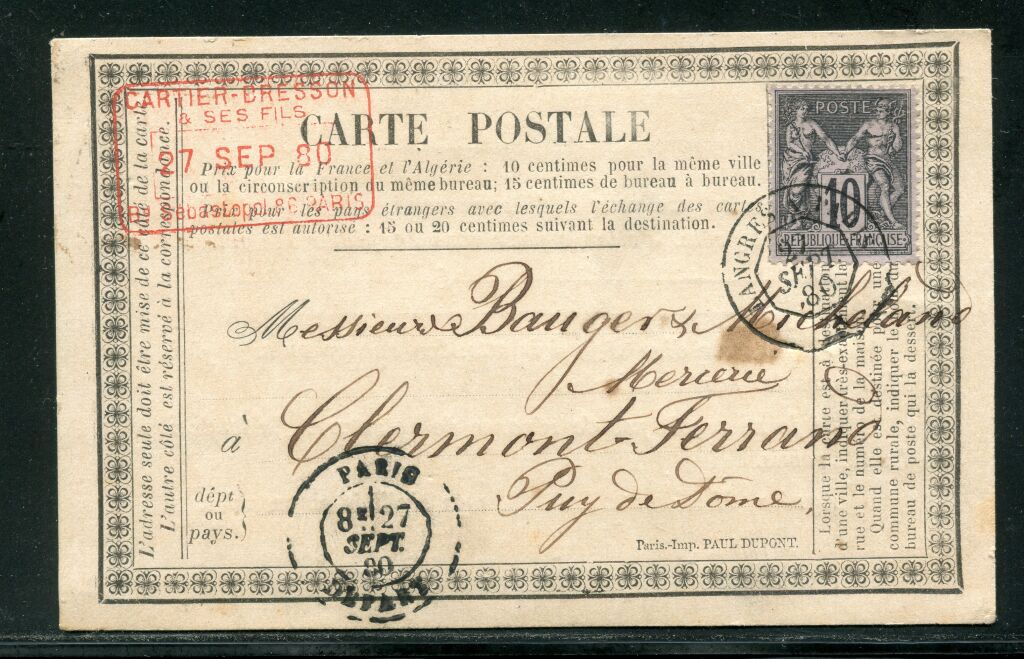 CARTIER-BRESSON
& SES FILS
27 SEP 80
Bd Sebastopol 86 PARIS
CARTE POSTALE
Prix pour la France et l'Algérie : 10 centimes pour la même ville
ou la circonscription du même bureau; 15 centimes de bureau à bureau.
Prix pour les pays étrangers avec lesquels l'échange des cartes
postales est autorisé : 15 ou 20 centimes suivant la destination.
POSTE
10
REPUBLIQUE FRANÇAISE
SEPT
80
Messieurs Bauger & Micheland
Mercerie
à Clermont-Ferrand
Puy de Dôme
dépt
ou
pays.
PARIS
8E 27
SEPT.
80
DEPART
Paris.-Imp. PAUL DUPONT.
L'adresse seule doit être mise de ce côté de la carte.
L'autre côté est réservé à la correspondance.
Lorsque la carte est à
d'une ville, indiquer très-exactement la
rue et le numéro de la maison
Quand elle est destinée pour une
commune rurale, indiquer le
bureau de poste qui la dessert.